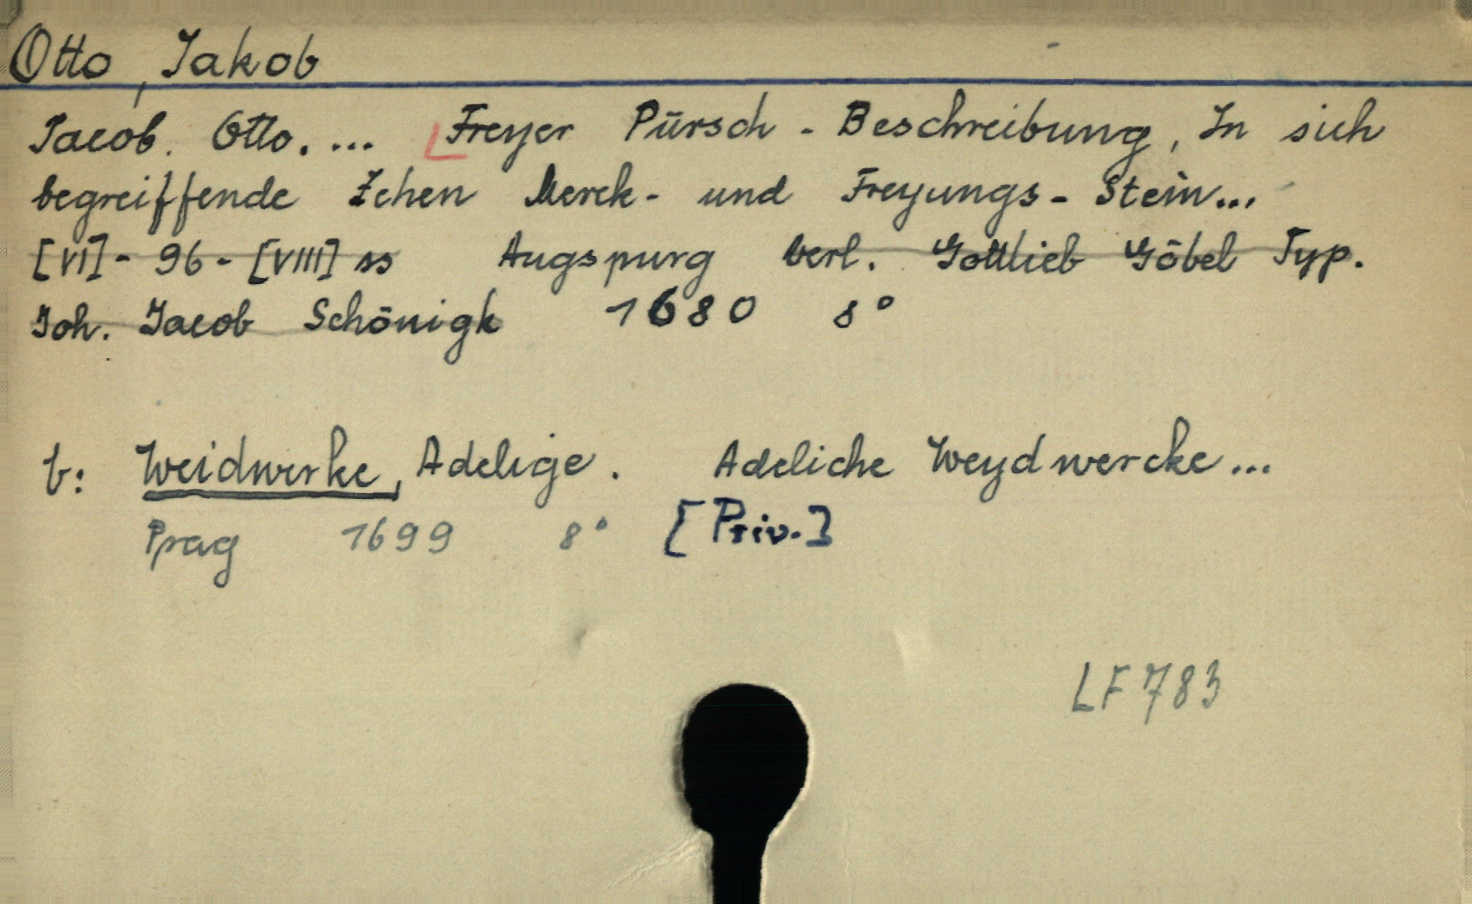 Otto, Jakob
Jacob. Otto. ... Freyer Pürsch - Beschreibung, In sich
begreiffende Zehen Merck- und Freyungs- Stein...
[VI]- 96 - [VIII] ss Augspurg verl. Gottlieb Göbel Typ.
Joh. Jacob Schönigk 1680 8°
b: Weidwerke, Adelige. Adeliche Weydwercke...
Prag 1699 8° [Priv.]
LF 783